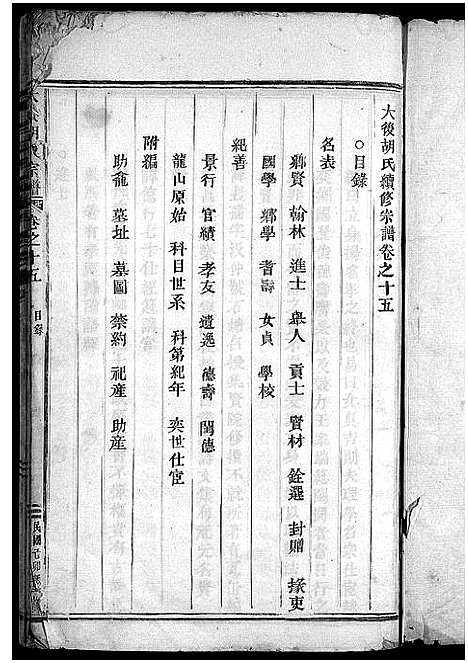 大後胡氏續修宗譜卷之十五
○目錄
名表
鄉賢 翰林 進士 舉人 貢士 賢材 銓選 封贈 掾吏
國學 鄉學 耆壽 女貞 學校
紀善
景行 官績 孝友 遺逸 德壽 閨德
龍山原始 科目世系 科第紀年 奕世仕宦
附編
助龕 墓址 墓圖 禁約 祀產 助產
宗譜 卷之十五 目錄
民國